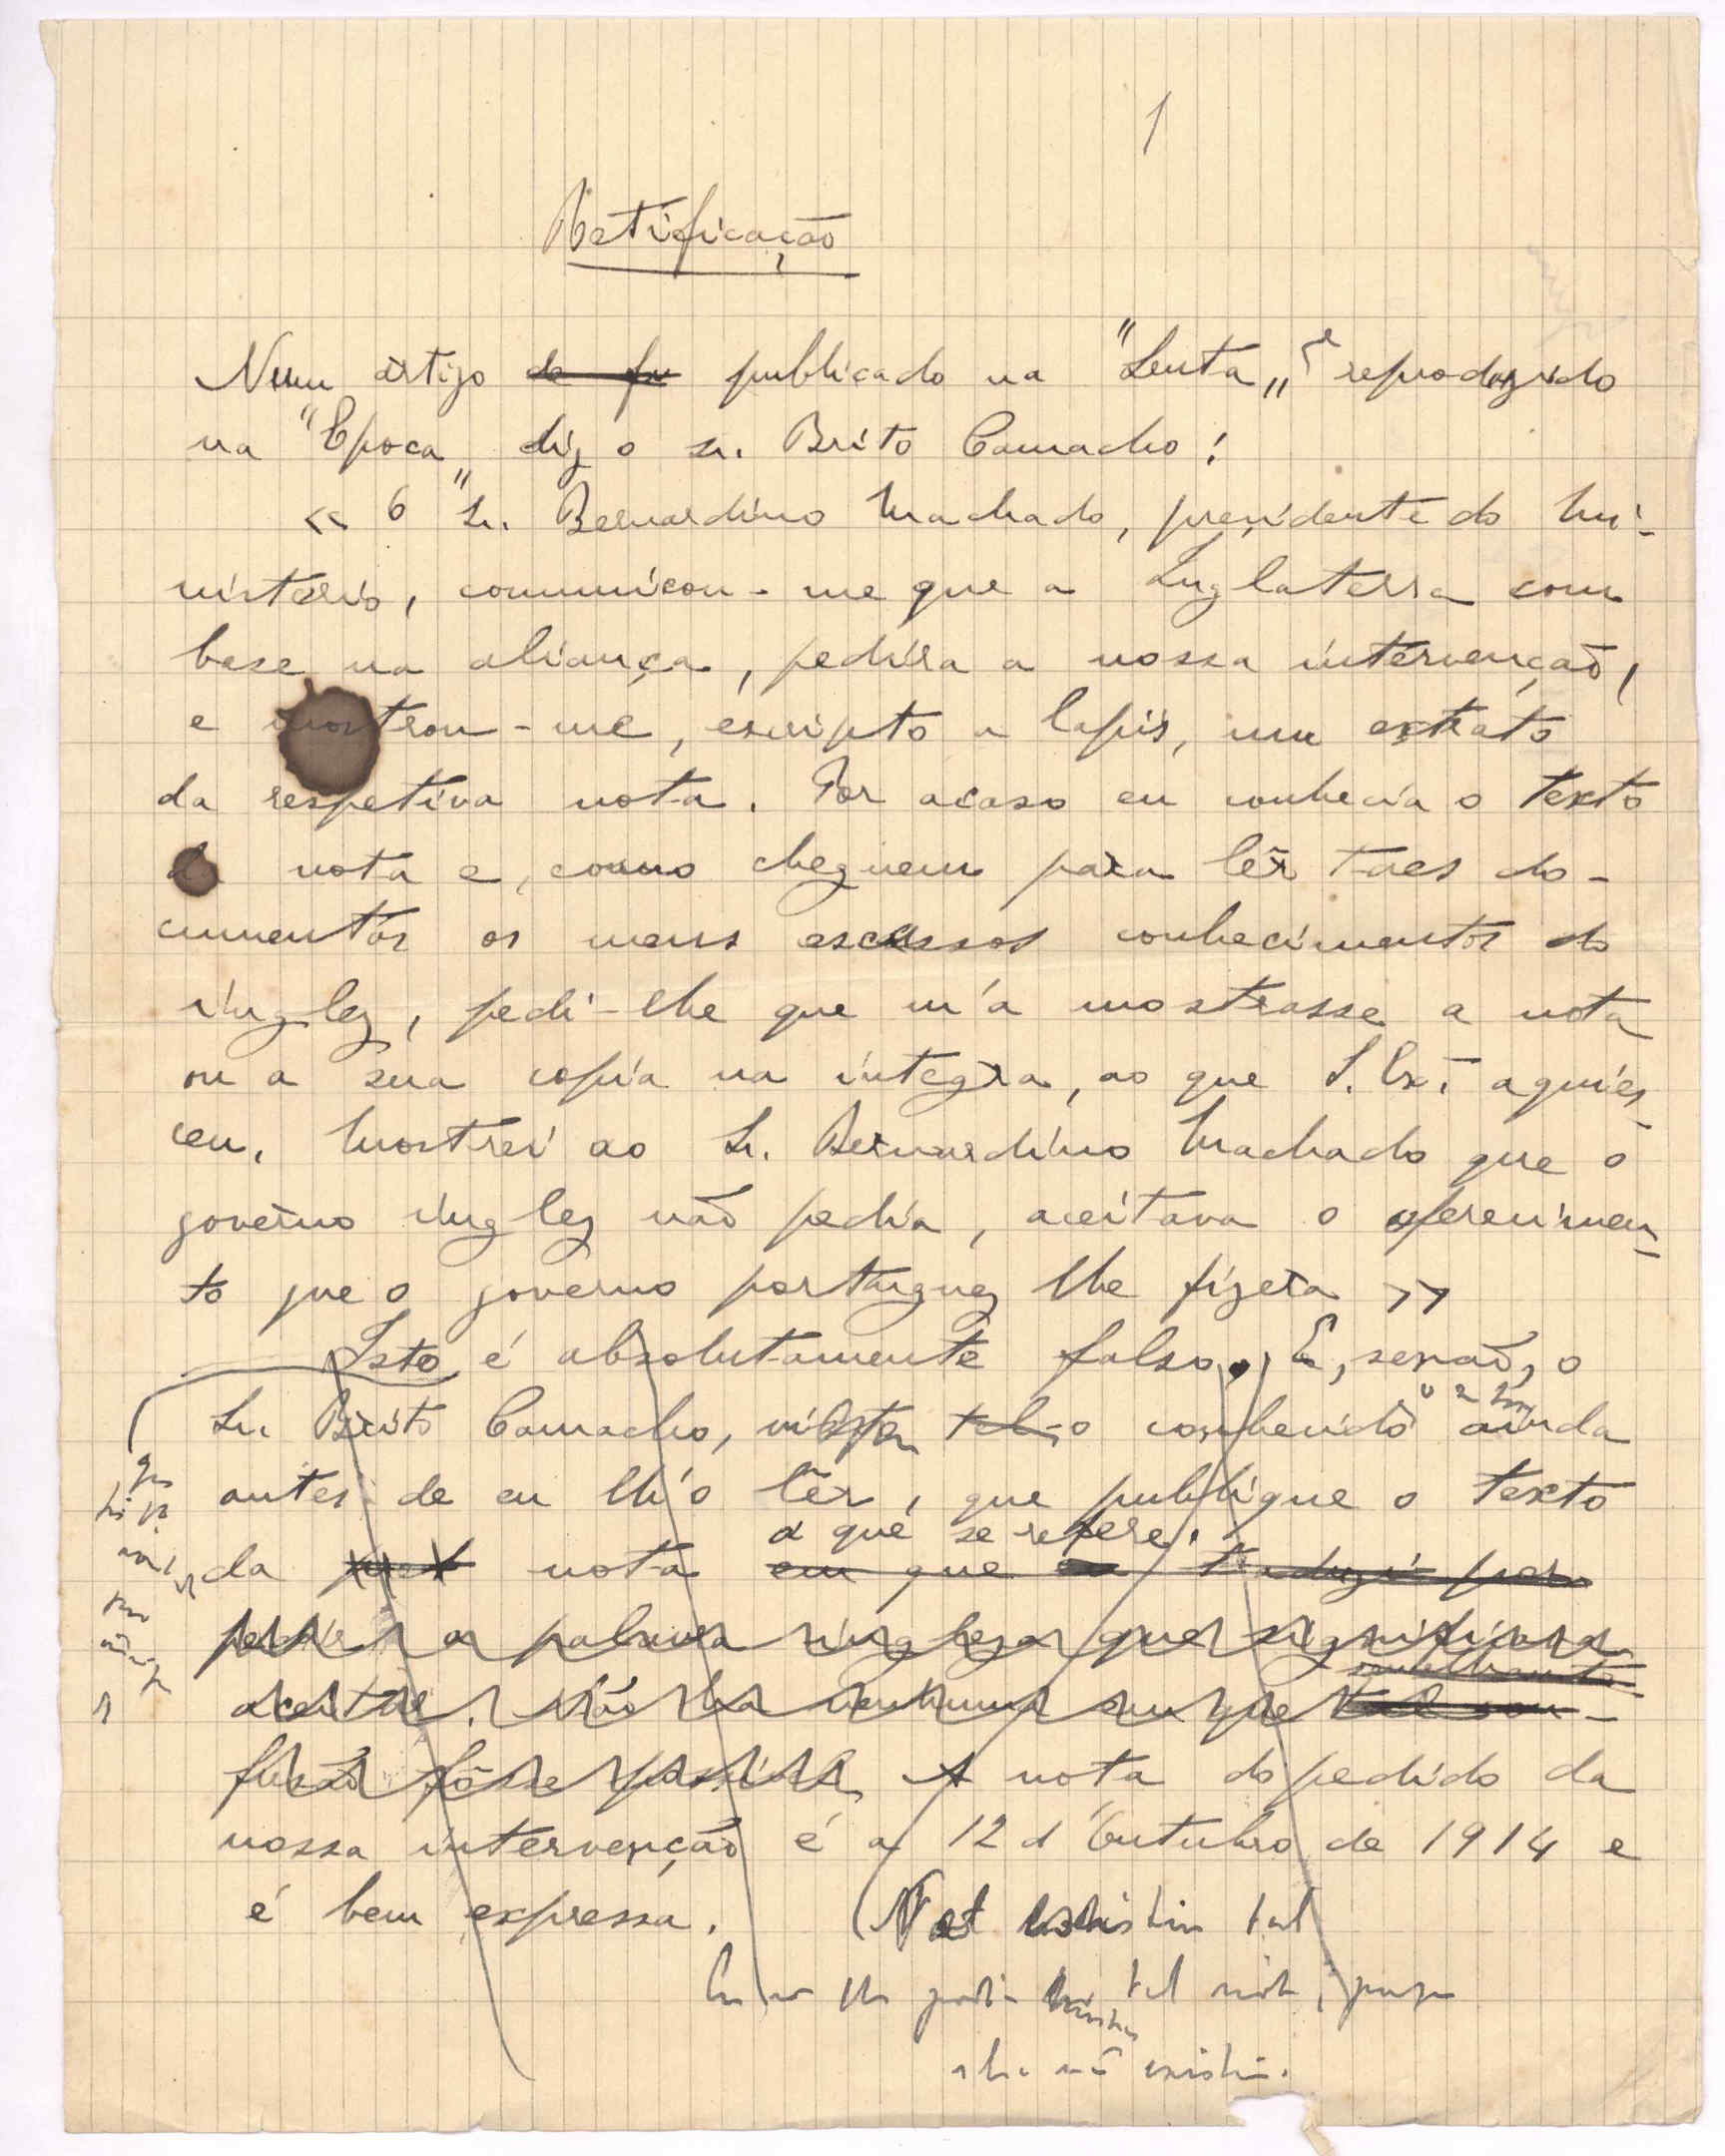 1
Retificação
Num artigo de fu publicado na "Lucta„ e reproduzido
na "Epoca„ diz o sr. Brito Camacho:
« O Sr. Bernardino Machado, presidente do mi-
nisterio, communicou-me que a Inglaterra com
base na aliança, pedira a nossa intervenção,
e mostrou-me, escripto a lapis, um extrato
da respetiva nota. Por acaso eu conhecia o texto
da nota e, como cheguem para lêr taes do-
cumentos os meus escassos conhecimentos do
inglez, pedi-lhe que m'a mostrasse a nota
ou a sua copia na integra, ao que S. Exª aquies-
ceu. Mostrei ao Sr. Bernardino Machado que o
governo inglez não pedia, aceitava o oferecimen-
to que o governo portuguez lhe fizera »
Isto é absolutamente falso. E, senão, o
Sr. Brito Camacho, conhecido ainda
antes de eu lh'o lêr, que publique o texto
a que se refere.
da nota em que traduzi por
pedir a palavra ingleza que significava
aceitar. Não ha nenhuma em que
semelhante
fusão fôsse possivel. A nota do pedido da
nossa intervenção é a 12 d'Outubro de 1914 e
é bem expressa. existiu tal
lhe podia tal nota, porque
ela não existia.